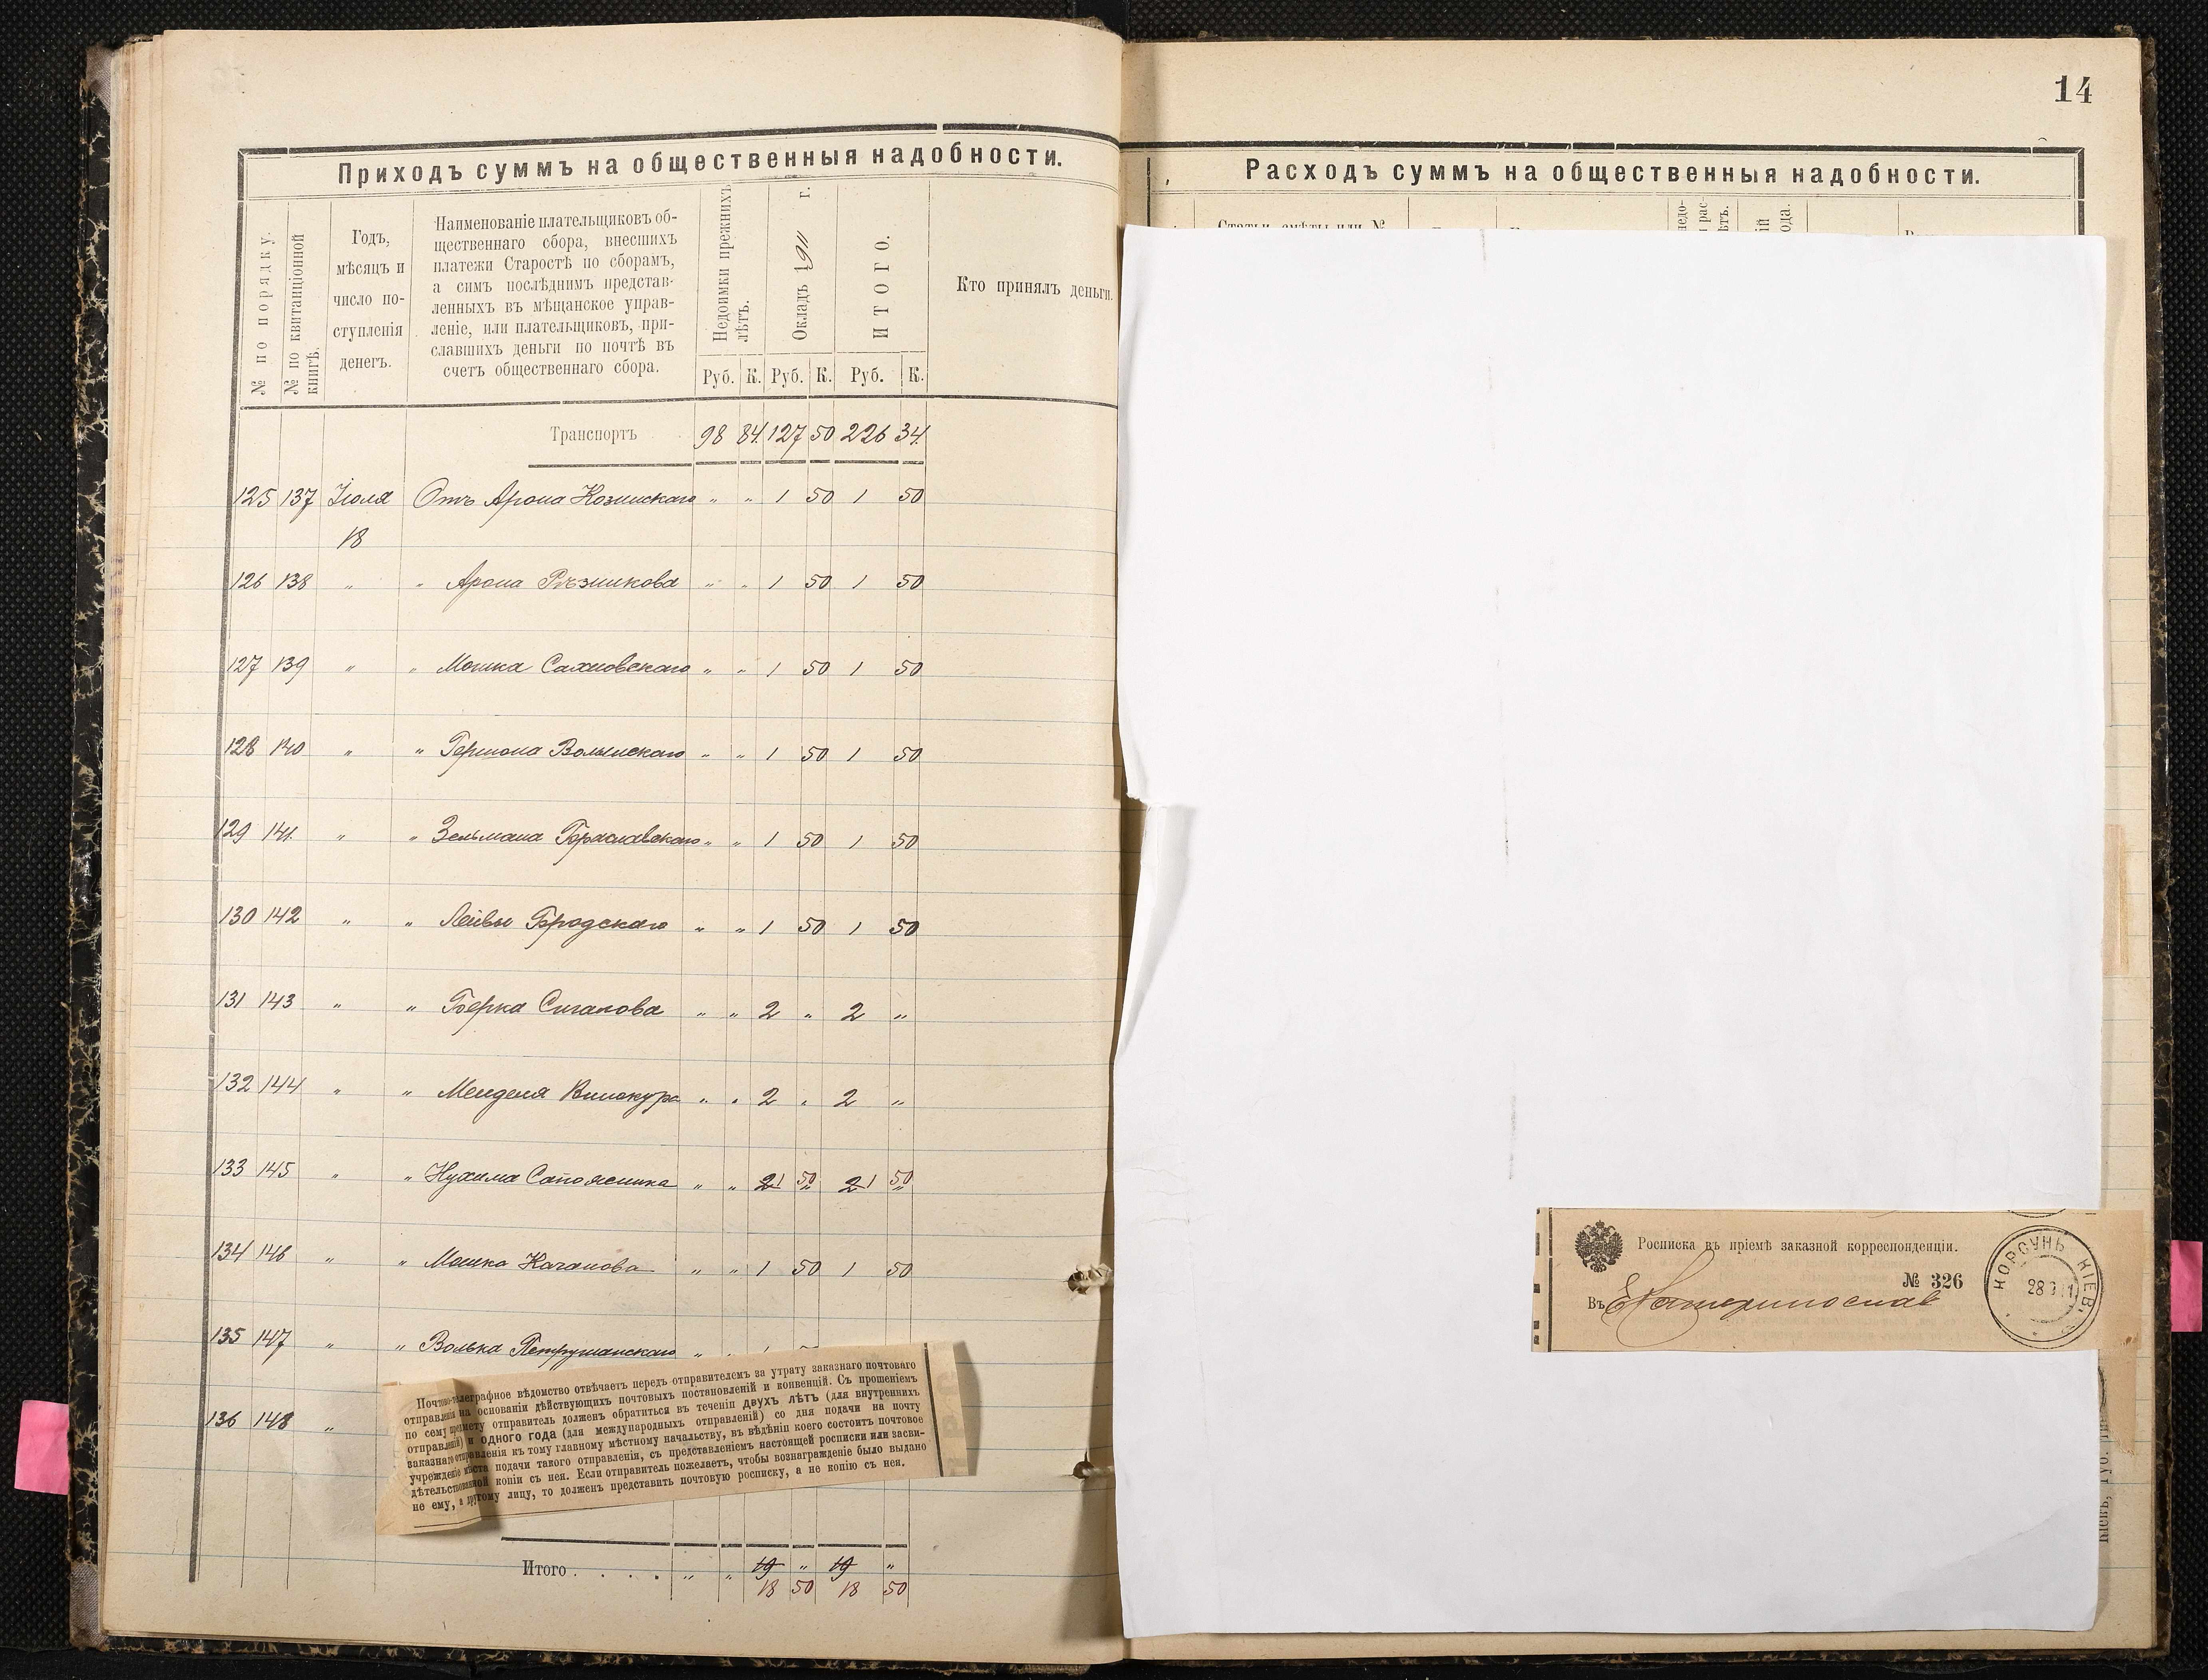 14
Приходъ суммъ на общественныя надобности.
№ по порядку.
№ по квитанціонной книгѣ.
Годъ,
мѣсяцъ и
число по-
ступленія
денегъ.
Наименованіе плательщиковъ об-
щественнаго сбора, внесшихъ
платежи Старостѣ по сборамъ,
а симъ послѣднимъ представ-
ленныхъ въ мѣщанское управ-
леніе, или плательщиковъ, при-
славшихъ деньги по почтѣ въ
счетъ общественнаго сбора.
Недоимки прежнихъ лѣтъ.
Окладъ 1911 г.
ИТОГО.
Кто принялъ деньги.
Руб. К. Руб. К. Руб. К.
Транспортъ 98 84 127 50 226 34
125 137 Іюля Отъ Арона Козинскаго " " 1 50 1 50
18
126 138 " " Арона Рѣзникова " " 1 50 1 50
127 139 " " Мошка Сахновскаго " " 1 50 1 50
128 140 " " Гершона Волынскаго " " 1 50 1 50
129 141 " " Зельмана " " 1 50 1 50
130 142 " " Лейвы Бродскаго " " 1 50 1 50
131 143 " " Берка " " 2 " 2 "
132 144 " " Менделя Винокура " " 2 " 2 "
133 145 " " Нухима Сапожника " " 2 1 50 2 1 50
134 146 " " Мошка Качанова " " 1 50 1 50
135 147 " " Волька Петрушанскаго "
136 148 "
Почтово-телеграфное вѣдомство отвѣчаетъ передъ отправителемъ за утрату заказнаго почтоваго
отправленія на основаніи дѣйствующихъ почтовыхъ постановленій и конвенцій. Съ прошеніемъ
по сему предмету отправитель долженъ обратиться въ теченіи двухъ лѣтъ (для внутреннихъ
отправленій) и одного года (для международныхъ отправленій) со дня подачи на почту
заказнаго отправленія къ тому главному мѣстному начальству, въ вѣдѣніи коего состоитъ почтовое
учрежденіе мѣста подачи такого отправленія, съ представленіемъ настоящей росписки или засви-
дѣтельствованной копіи съ нея. Если отправитель пожелаетъ, чтобы вознагражденіе было выдано
не ему, а другому лицу, то долженъ представить почтовую росписку, а не копію съ нея.
Итого . . . . " " 19 " 19 "
18 50 18 50
Расходъ суммъ на общественныя надобности.
Росписка въ пріемѣ заказной корреспонденціи.
№ 326
Въ Екатеринослав
КОРСУНЬ КІЕВ.
28